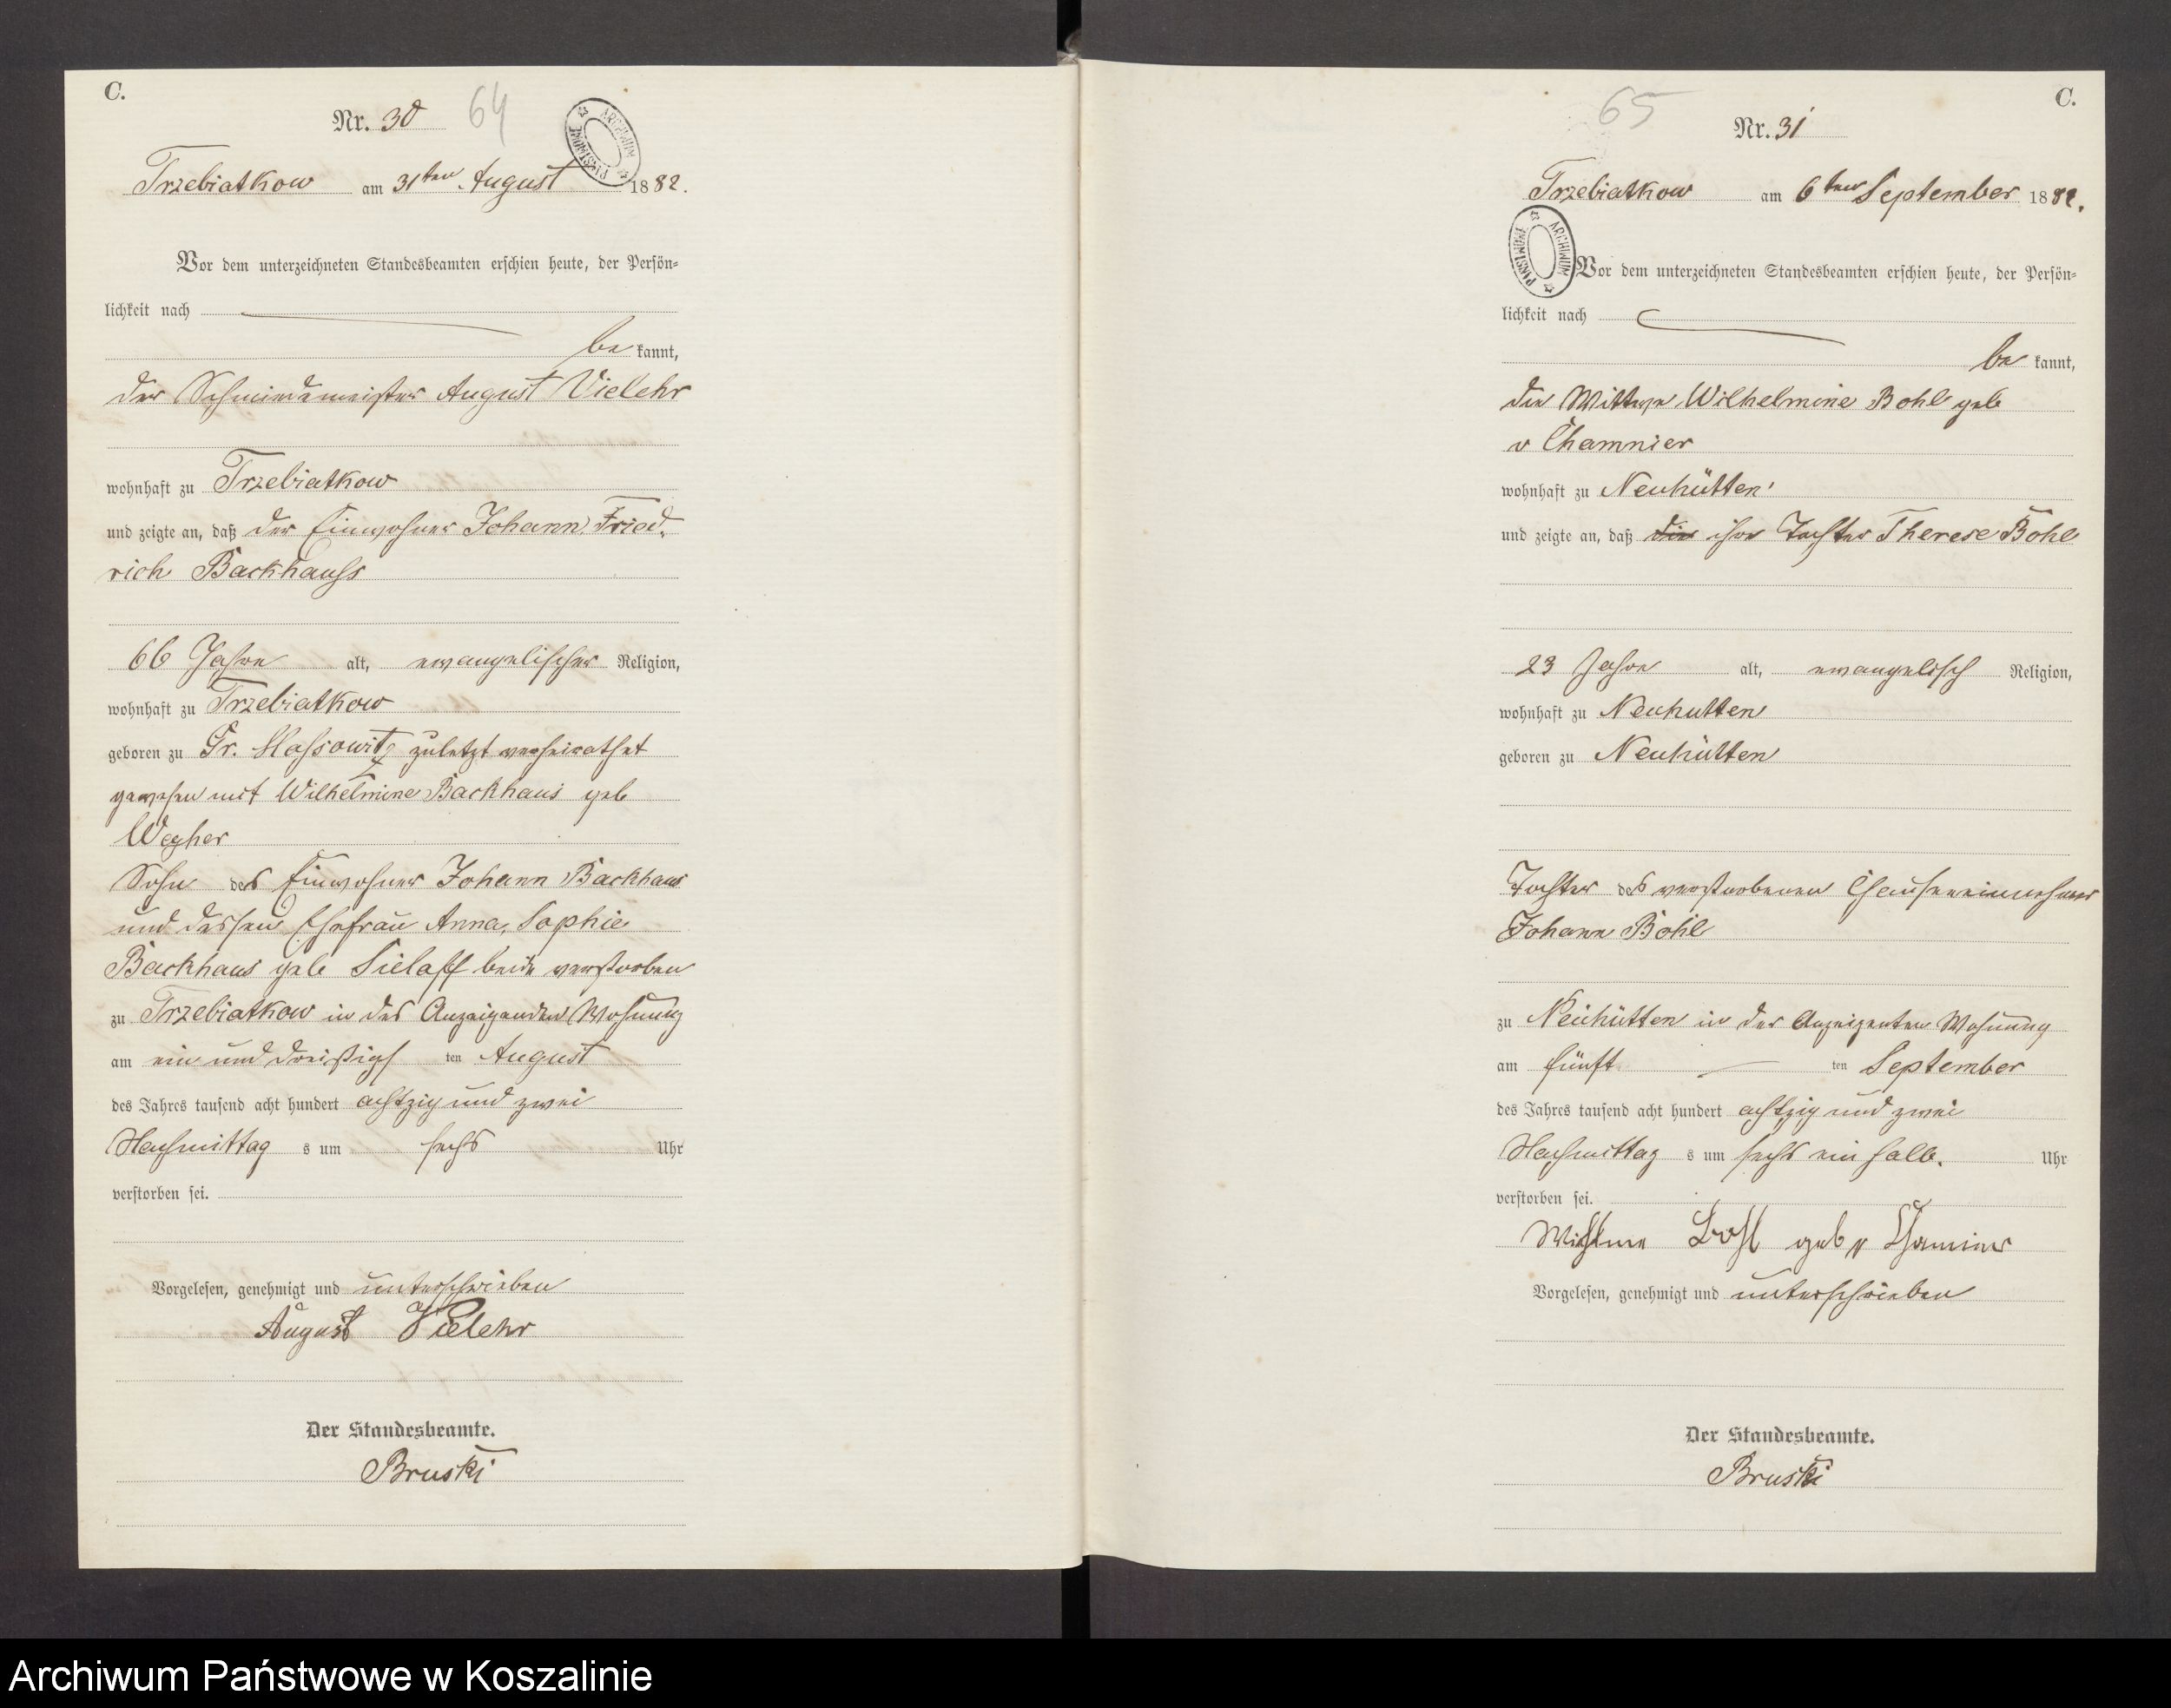 C.
Nr. 30 64
ARCHIWUM PAŃSTWOWE
Trzebiatkow am 31ten August 1882.
Vor dem unterzeichneten Standesbeamten erschien heute, der Persön=
lichkeit nach
be kannt,
der Schmiedemeister August Vielehr
wohnhaft zu Trzebiatkow
und zeigte an, daß der Einwohner Johann Fried.
rich Backhauss
66 Jahre alt, evangelischer Religion,
wohnhaft zu Trzebiatkow
geboren zu Gr. Massowitz zuletzt verheirathet
gewesen mit Wilhelmine Backhaus geb
Wegher
Sohn des Einwohner Johann Backhaus
und dessen Ehefrau Anna, Sophie
Backhaus geb Sielaff beide verstorben
zu Trzebiatkow in des Anzeigenden Wohnung
am ein und dreißigs ten August
des Jahres tausend acht hundert achtzig und zwei
Nachmittag s um sechs Uhr
verstorben sei.
Vorgelesen, genehmigt und unterschrieben
August Vielehr
Der Standesbeamte.
Bruski
C.
65
Nr. 31
Trzebiatkow am 6ten September 1882.
ARCHIWUM PAŃSTWOWE
Vor dem unterzeichneten Standesbeamten erschien heute, der Persön=
lichkeit nach
be kannt,
die Wittwe Wilhelmine Bohl geb
v Chamnier
wohnhaft zu Neuhütten
und zeigte an, daß die ihre Tochter Therese Bohl
23 Jahre alt, evangelisch Religion,
wohnhaft zu Neuhutten
geboren zu Neuhütten
Tochter des verstorbenen
Johann Bohl
zu Neuhütten in der Anzeigenten Wohnung
am fünft ten September
des Jahres tausend acht hundert achtzig und zwei
Nachmittag s um sechs ein halb. Uhr
verstorben sei.
Bohl geb v
Vorgelesen, genehmigt und unterschrieben
Der Standesbeamte.
Bruski
Archiwum Państwowe w Koszalinie